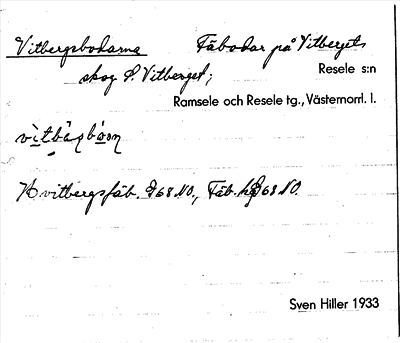 Vitbergsbodarna Fäbodar på Vitbergets
skog S. Vitberget; Resele s:n
Ramsele och Resele tg., Västernorrl. l.
Hvitbergsfäb. 68 NO., Fäb. 68 NO.
Sven Hiller 1933